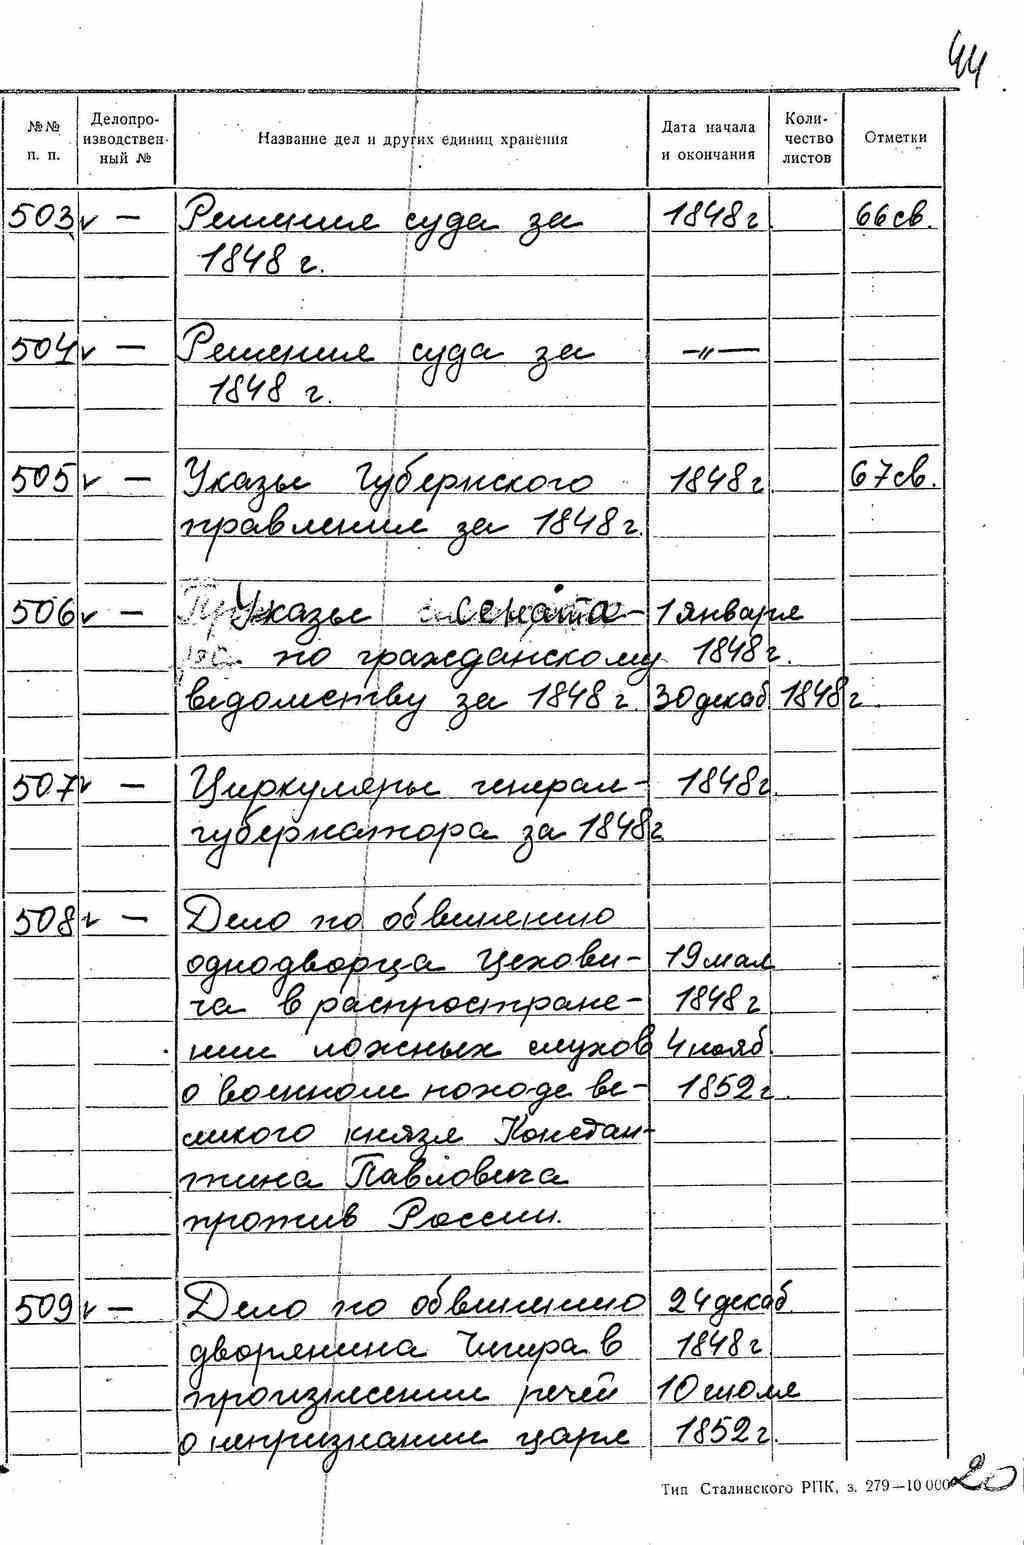 44
№№ п. п. Делопроизводствен-ный № Название дел и других единиц хранения Дата начала и окончания Коли-чество листов Отметки
503 v — Решения суда за 1848 г 66 св.
1848 г.
504 v — Решения суда за —"—
1848 г.
505 v — Указы Губернского 1848 г 67 св.
правления за 1848 г.
506 v — Указы Сената - 1 января
по гражданскому 1848 г.
ведомству за 1848 г. 30 декаб 1848 г.
507 v — Циркуляры генерал- 1848 г.
губернатора за 1848 г
508 v — Дело по обвинению
однодворца Цехови- 19 мая
ча в распростране- 1848 г
нии ложных слухов 4 нояб.
о военном походе ве- 1852 г.
ликого князя Констан-
тина Павловича
против России.
509 v — Дело по обвинению 24 декаб
дворянина Чигира в 1848 г
произнесении речей 10 июля
о непризнании царя 1852 г.
Тип Сталинского РПК, з. 279—10 000
20